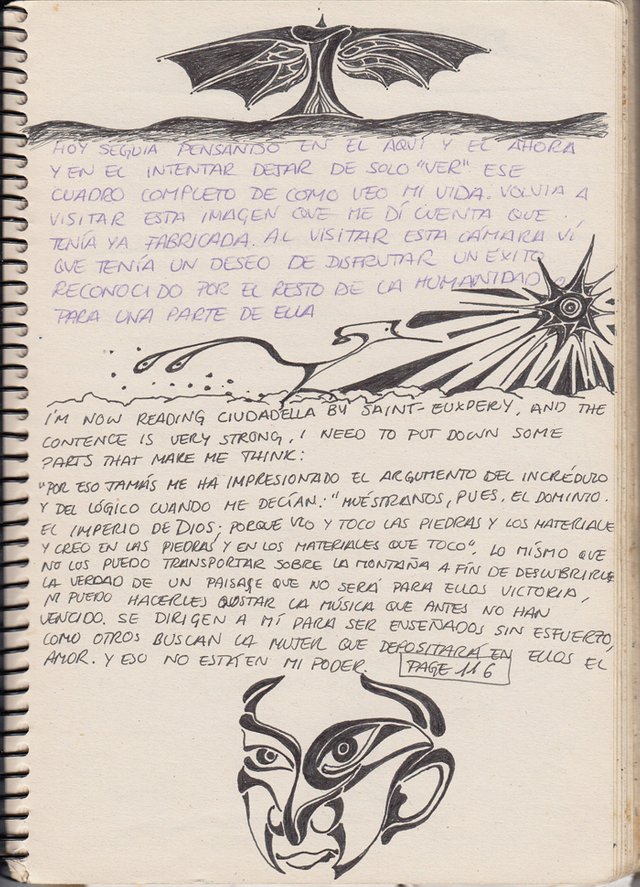 HOY SEGUIA PENSANDO EN EL AQUÍ Y EL AHORA
Y EN EL INTENTAR DEJAR DE SOLO "VER" ESE
CUADRO COMPLETO DE COMO VEO MI VIDA. VOLVIA A
VISITAR ESTA IMAGEN QUE ME DÍ CUENTA QUE
TENÍA YA FABRICADA. AL VISITAR ESTA CÁMARA VÍ
QUE TENÍA UN DESEO DE DISFRUTAR UN ÉXITO
RECONOCIDO POR EL RESTO DE LA HUMANIDAD O
PARA UNA PARTE DE ELLA
I'M NOW READING CIUDADELLA BY SAINT-EUXPERY, AND THE
CONTENCE IS VERY STRONG, I NEED TO PUT DOWN SOME
PARTS THAT MAKE ME THINK:
"POR ESO JAMÁS ME HA IMPRESIONADO EL ARGUMENTO DEL INCRÉDULO
Y DEL LÓGICO CUANDO ME DECÍAN: "MUÉSTRANOS, PUES, EL DOMINIO.
EL IMPERIO DE DIOS; PORQUE VEO Y TOCO LAS PIEDRAS Y LOS MATERIALE
Y CREO EN LAS PIEDRAS Y EN LOS MATERIALES QUE TOCO". LO MISMO QUE
NO LOS PUEDO TRANSPORTAR SOBRE LA MONTAÑA A FIN DE DESCUBRIRLE
LA VERDAD DE UN PAISAGE QUE NO SERÁ PARA ELLOS VICTORIA,
NI PUEDO HACERLES GUSTAR LA MÚSICA QUE ANTES NO HAN
VENCIDO. SE DIRIGEN A MÍ PARA SER ENSEÑADOS SIN ESFUERZO,
COMO OTROS BUSCAN LA MUJER QUE DEPOSITARÁ EN ELLOS EL
AMOR. Y ESO NO ESTÁ EN MI PODER. PAGE 116